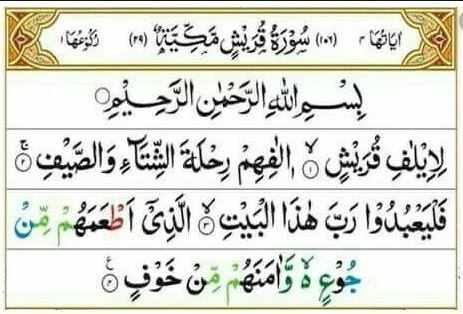 اٰیَاتُهَا ۴ (۱۰۶) سُوْرَةُ قُرَیْشٍ مَّكِّیَّةٌ (۲۹) رُكُوْعُهَا ۱
بِسْمِ اللّٰهِ الرَّحْمٰنِ الرَّحِیْمِ
لِاِیْلٰفِ قُرَیْشٍ ۙ﴿۱﴾ اٖلٰفِهِمْ رِحْلَةَ الشِّتَآءِ وَالصَّیْفِ ۚ﴿۲﴾
فَلْیَعْبُدُوْا رَبَّ هٰذَا الْبَیْتِ ۙ﴿۳﴾ الَّذِیْۤ اَطْعَمَهُمْ مِّنْ
جُوْعٍ ۙ۬ وَّاٰمَنَهُمْ مِّنْ خَوْفٍ ﴿۴﴾ ع